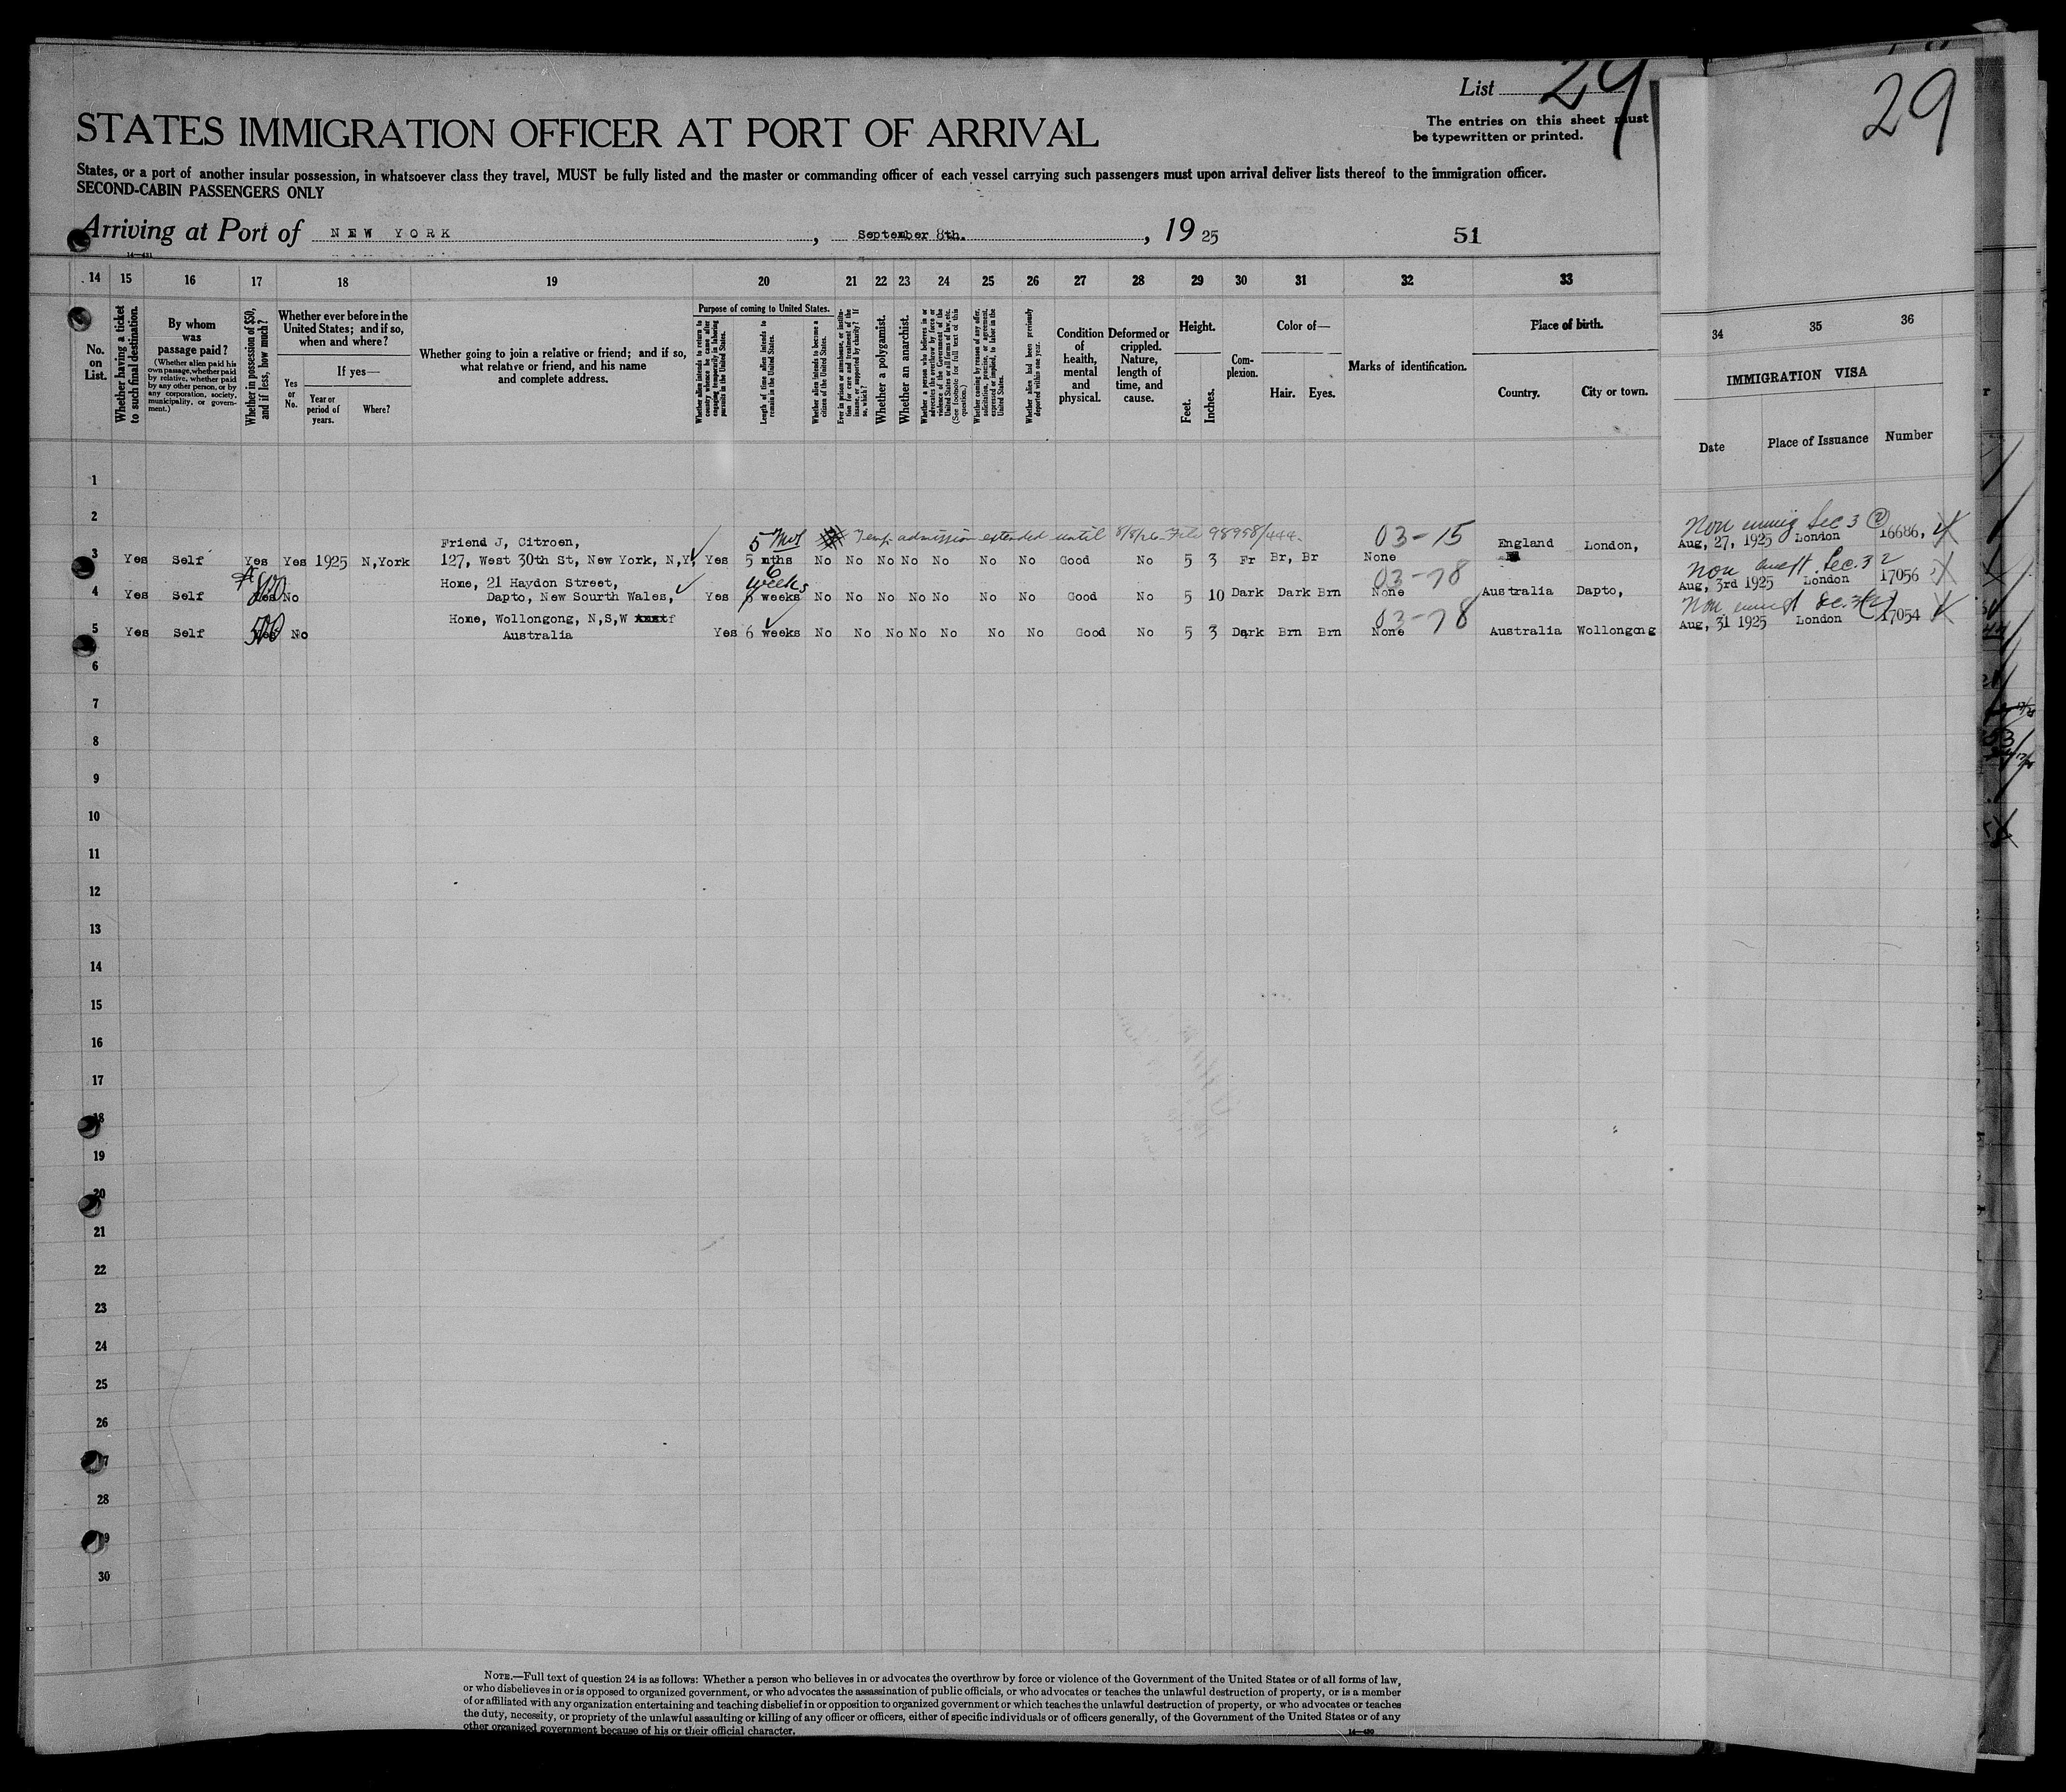 List 29
29
The entries on this sheet must
be typewritten or printed.
STATES IMMIGRATION OFFICER AT PORT OF ARRIVAL
States, or a port of another insular possession, in whatsoever class they travel, MUST be fully listed and the master or commanding officer of each vessel carrying such passengers must upon arrival deliver lists thereof to the immigration officer.
SECOND-CABIN PASSENGERS ONLY
Arriving at Port of NEW YORK, September 8th., 1925 51
14—431
14 15 16 17 18 19 20 21 22 23 24 25 26 27 28 29 30 31 32 33 34 35 36
No. on List.
Whether having a ticket to such final destination.
By whom was passage paid?
(Whether alien paid his own passage, whether paid by relative, whether paid by any other person, or by any corporation, society, municipality, or government.)
Whether in possession of $50, and if less, how much?
Whether ever before in the United States; and if so, when and where?
Yes or No.
If yes—
Year or period of years.
Where?
Whether going to join a relative or friend; and if so, what relative or friend, and his name and complete address.
Purpose of coming to United States.
Whether alien intends to return to country whence he came after engaging temporarily in laboring pursuits in the United States.
Length of time alien intends to remain in the United States.
Whether alien intends to become a citizen of the United States.
Ever in prison or almshouse, or institution for care and treatment of the insane, or supported by charity? If so, which?
Whether a polygamist.
Whether an anarchist.
Whether a person who believes in or advocates the overthrow by force or violence of the Government of the United States or all forms of law, etc. (See footnote for full text of this question.)
Whether coming by reason of any offer, solicitation, promise, or agreement, expressed or implied, to labor in the United States.
Whether alien had been previously deported within one year.
Condition of health, mental and physical.
Deformed or crippled. Nature, length of time, and cause.
Height.
Feet.
Inches.
Complexion.
Color of—
Hair.
Eyes.
Marks of identification.
Place of birth.
Country.
City or town.
IMMIGRATION VISA
Date
Place of Issuance
Number
1
2
5 Mos Temp. admission extended until 8/8/26 File 98958/444. 03-15 Non immig Sec 3 (2)
Friend J, Citroen,
3 Yes Self Yes Yes 1925 N,York 127, West 30th St, New York, N,Y, Yes 5 mths No No No No No No No Good No 5 3 Fr Br, Br None England London, Aug, 27, 1925 London 16686,
Home, 21 Haydon Street, 6 weeks 03-78 Non Sec. 3 2
4 Yes Self Yes No Dapto, New Sourth Wales, Yes 6 weeks No No No No No No No Good No 5 10 Dark Dark Brn None Australia Dapto, Aug, 3rd 1925 London 17056
Home, Wollongong, N,S,W 03-78 Non Sec. 3(2)
5 Yes Self 500 Yes No Australia Yes 6 weeks No No No No No No No Good No 5 3 Dark Brn Brn None Australia Wollongong Aug, 31 1925 London 17054
6
7
8
9
10
11
12
13
14
15
16
17
18
19
20
21
22
23
24
25
26
27
28
29
30
NOTE.—Full text of question 24 is as follows: Whether a person who believes in or advocates the overthrow by force or violence of the Government of the United States or of all forms of law,
or who disbelieves in or is opposed to organized government, or who advocates the assassination of public officials, or who advocates or teaches the unlawful destruction of property, or is a member
of or affiliated with any organization entertaining and teaching disbelief in or opposition to organized government or which teaches the unlawful destruction of property, or who advocates or teaches
the duty, necessity, or propriety of the unlawful assaulting or killing of any officer or officers, either of specific individuals or of officers generally, of the Government of the United States or of any
other organized government because of his or their official character.
14—430